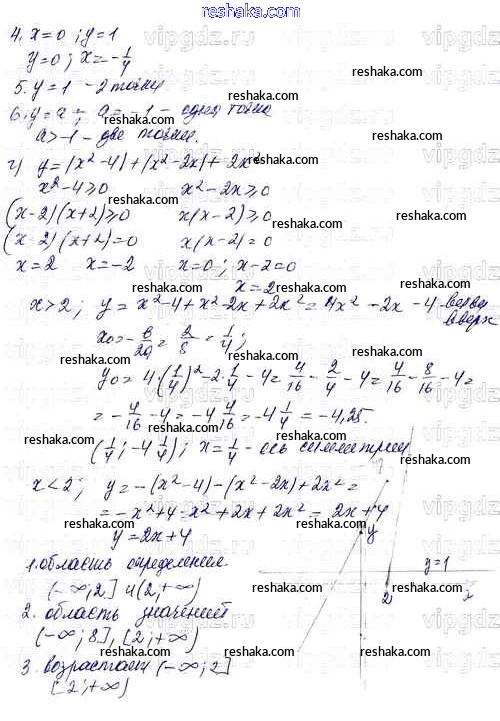 reshaka.com
4. x=0; y=1
y=0; x=-1/4
5. y=1 - 2 точки
6. y=a; a=-1 - одна точка
a>-1 - две точки.
г) y=|x²-4|+|x²-2x|+2x²
x²-4≥0 x²-2x≥0
(x-2)(x+2)≥0 x(x-2)≥0
(x-2)(x+2)=0 x(x-2)=0
x=2 x=-2 x=0; x-2=0
x=2
x>2; y=x²-4+x²-2x+2x²=4x²-2x-4 - ветви вверх
x₀=-b/2a=2/8=1/4;
y₀=4(1/4)²-2·1/4-4=4/16-2/4-4=4/16-8/16-4=
=-4/16-4=-4 4/16=-4 1/4=-4,25.
(1/4; -4 1/4); x=1/4 - ось симметрии
x<2; y=-(x²-4)-(x²-2x)+2x²=
=-x²+4-x²+2x+2x²=2x+4
y=2x+4
y
y=1
2
x
1. область определения
(-∞;2] и (2;+∞)
2. область значений
(-∞;8], [2;+∞)
3. возрастает (-∞;2]
[2;+∞)